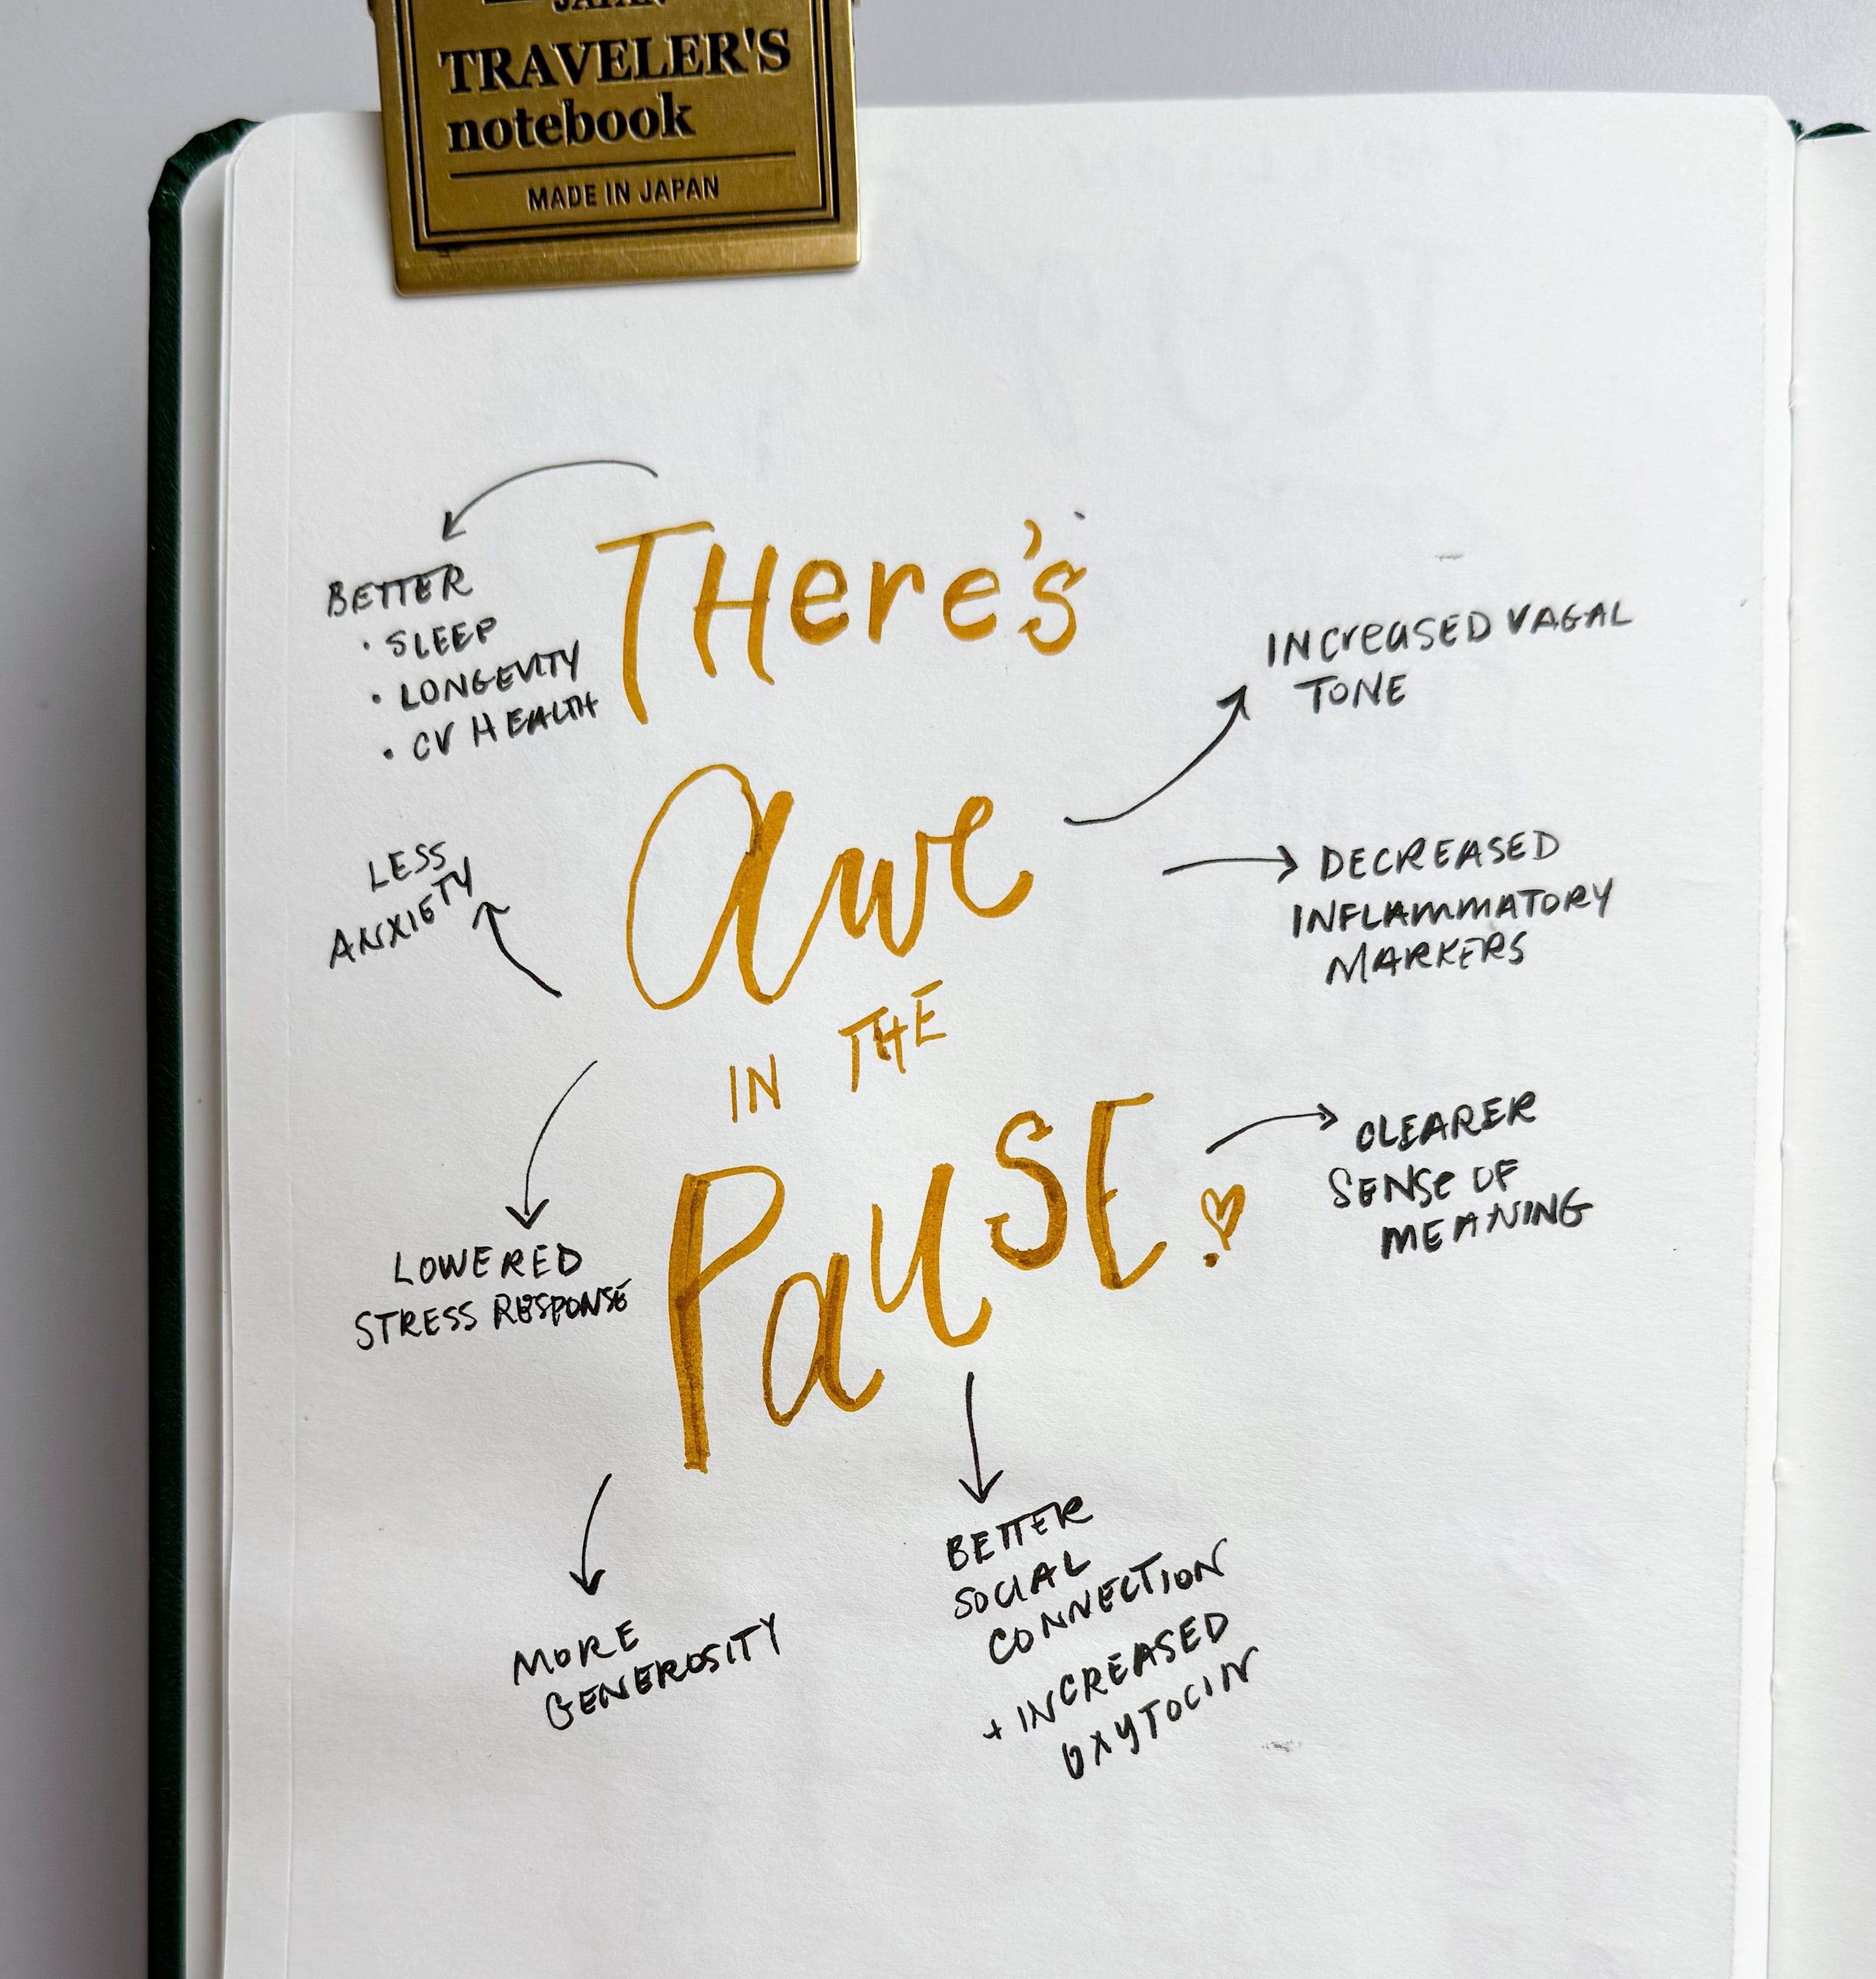 JAPAN
TRAVELER'S
notebook
MADE IN JAPAN
THere's
awe
IN THE
PauSE.
BETTER
• SLEEP
• LONGEVITY
• CV HEALTH
LESS
ANXIETY
LOWERED
STRESS RESPONSE
MORE
GENEROSITY
BETTER
SOCIAL
CONNECTION
+ INCREASED
OXYTOCIN
INCreaSED VAGAL
TONE
DECREASED
INFLAmmATORY
MARKERS
CLEARER
SENSe OF
MEANING